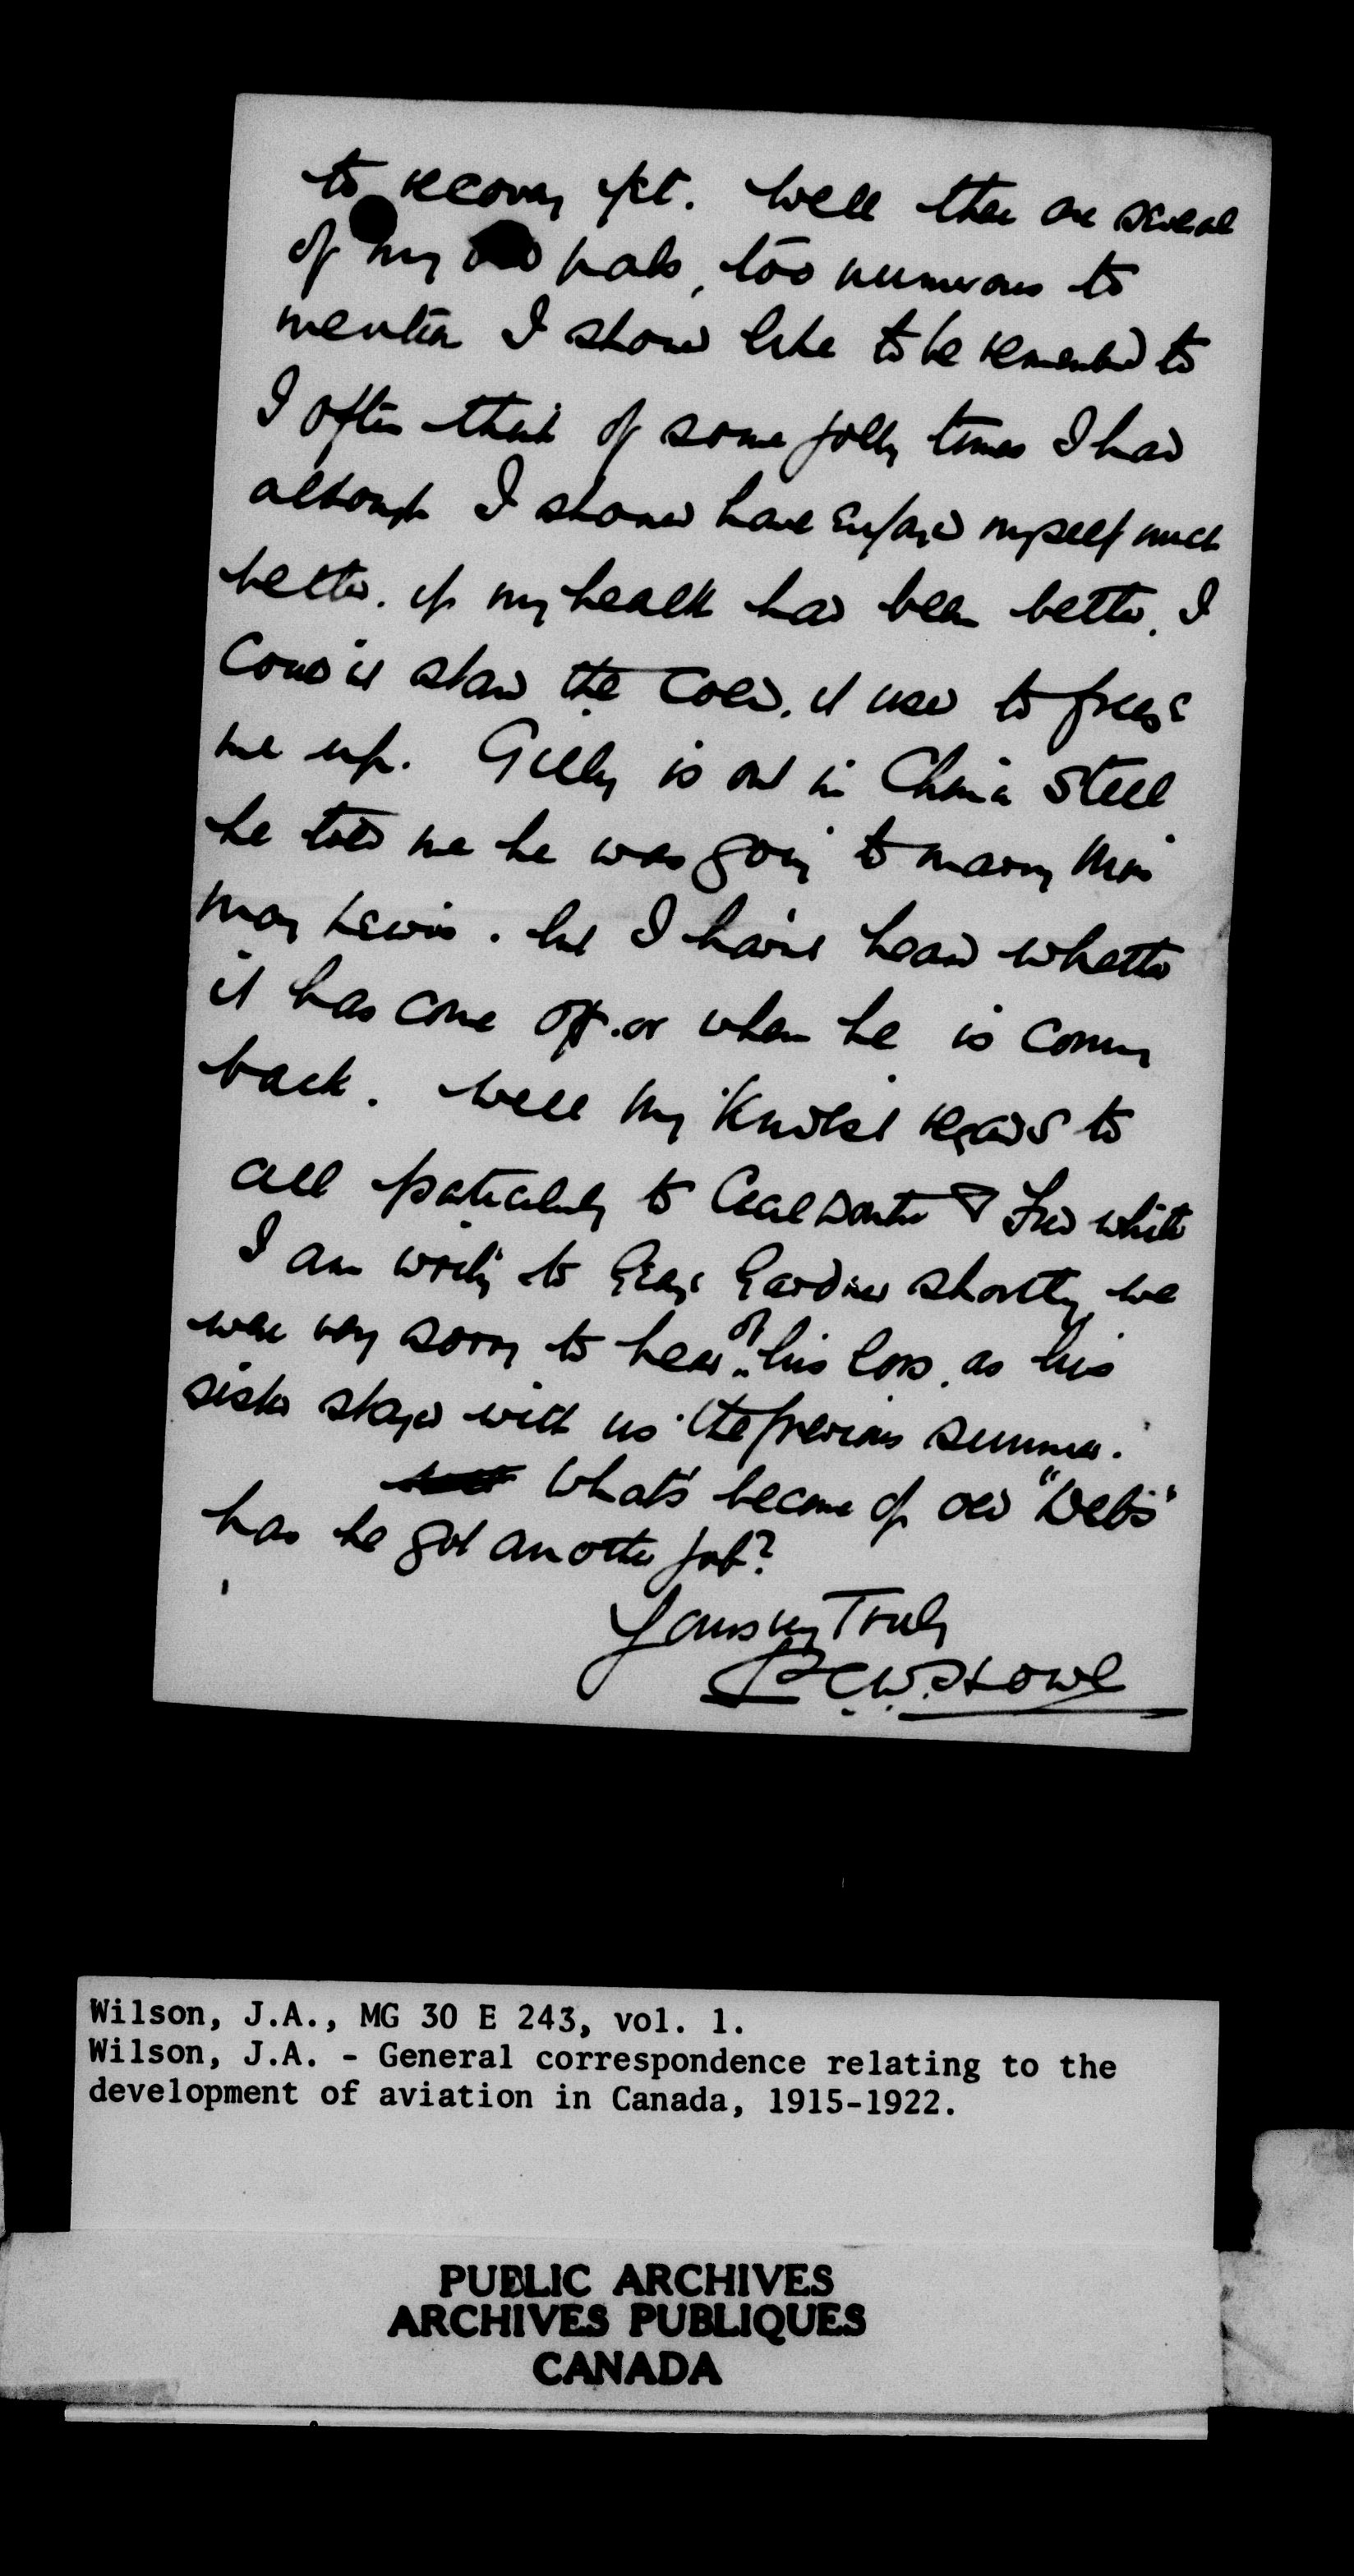 to recover yet. Well there are several
of my old pals, too numerous to
mention I should like to be remembered to
I often think of some jolly times I had
although I should have enjoyed myself much
better. if my health had been better. I
could'nt stand the cold. it used to freeze
me up. Gilly is out in China Still
he told me he was going to marry Miss
May Lewis. but I hav'nt heard whether
it has come off. or when he is coming
back. Well my Kindest regards to
all particularly to Cecil & Fred White
I am writing to George Gardner shortly, we
were very sorry to hear of his loss. as his
sister stayed with us the previous summer.
What's become of old "Webs"
has he got another job?
Yours very Truly
Wilson, J.A., MG 30 E 243, vol. 1.
Wilson, J.A. - General correspondence relating to the
development of aviation in Canada, 1915-1922.
PUBLIC ARCHIVES
ARCHIVES PUBLIQUES
CANADA